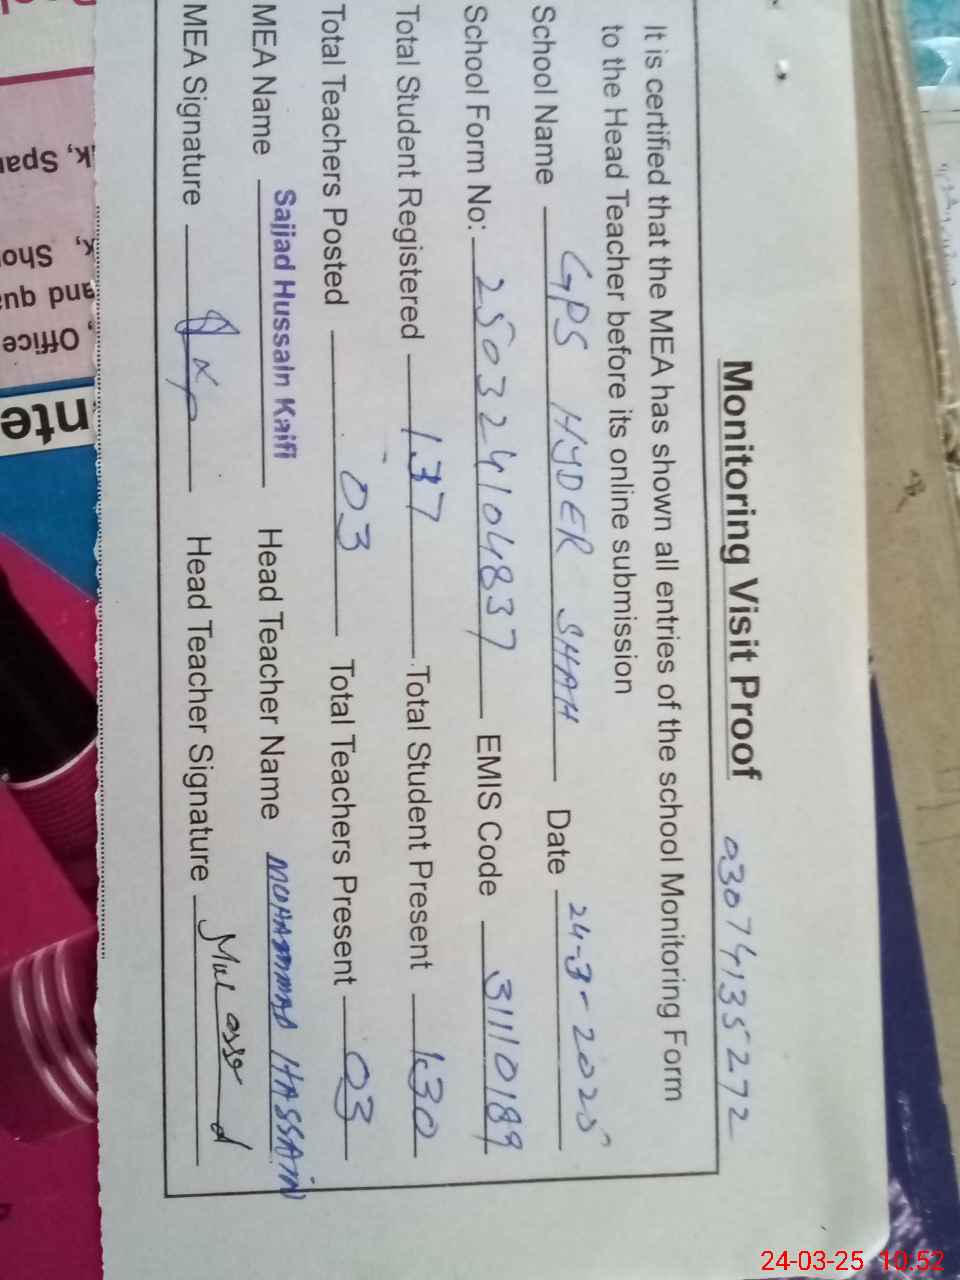 Monitoring Visit Proof 03074135272
It is certified that the MEA has shown all entries of the school Monitoring Form
to the Head Teacher before its online submission
School Name GPS HYDER SHAH Date 24-3-2025
School Form No: 250324104837 EMIS Code 31110189
Total Student Registered 137 Total Student Present 130
Total Teachers Posted 03 Total Teachers Present 03
MEA Name Sajjad Hussain Kaifi Head Teacher Name MUHAMMAD HASSAIN
MEA Signature Head Teacher Signature
k, Spa
k, Sho
and qua
Office
nte
24-03-25 10:52